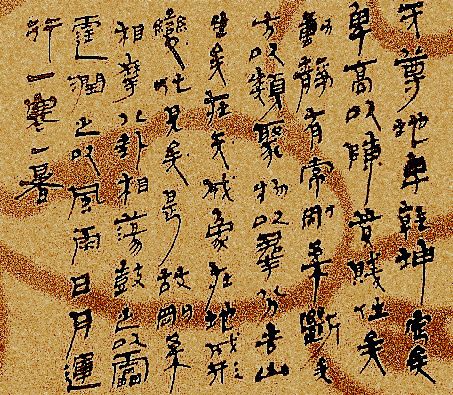 天尊地卑乾坤定矣
卑高以陳貴賤位矣
動靜有常剛柔斷矣
方以類聚物以羣分吉凶
生矣在天成象在地成形
變化見矣是故剛柔
相摩八卦相蕩鼓之以雷
霆潤之以風雨日月運
行一寒一暑